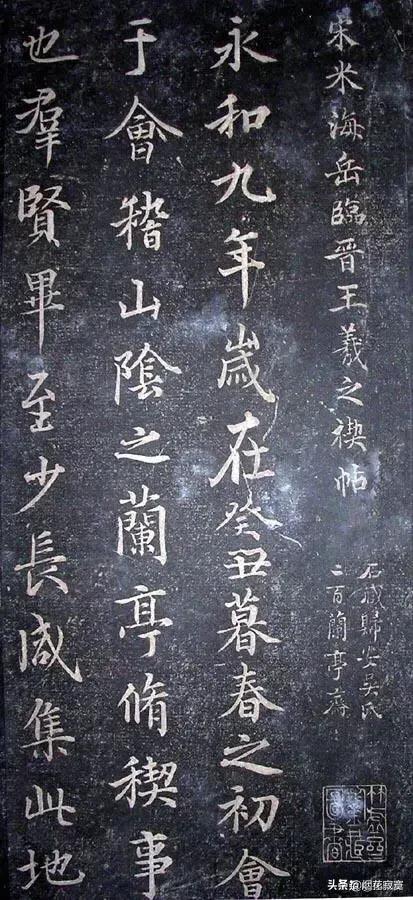 宋米海岳臨晋王羲之禊帖
石藏歸安吳氏
二百蘭亭齋
永和九年歲在癸丑暮春之初會
于會稽山陰之蘭亭脩稧事
也羣賢畢至少長咸集此地
头条@烟花寂寞